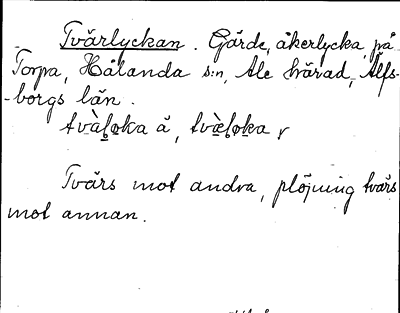 Tvärlyckan. Gärde, åkerlycka på
Torpa, Hålanda s:n, Ale härad, Älfs-
borgs län.
Tvärs mot andra, plöjning tvärs
mot annan.